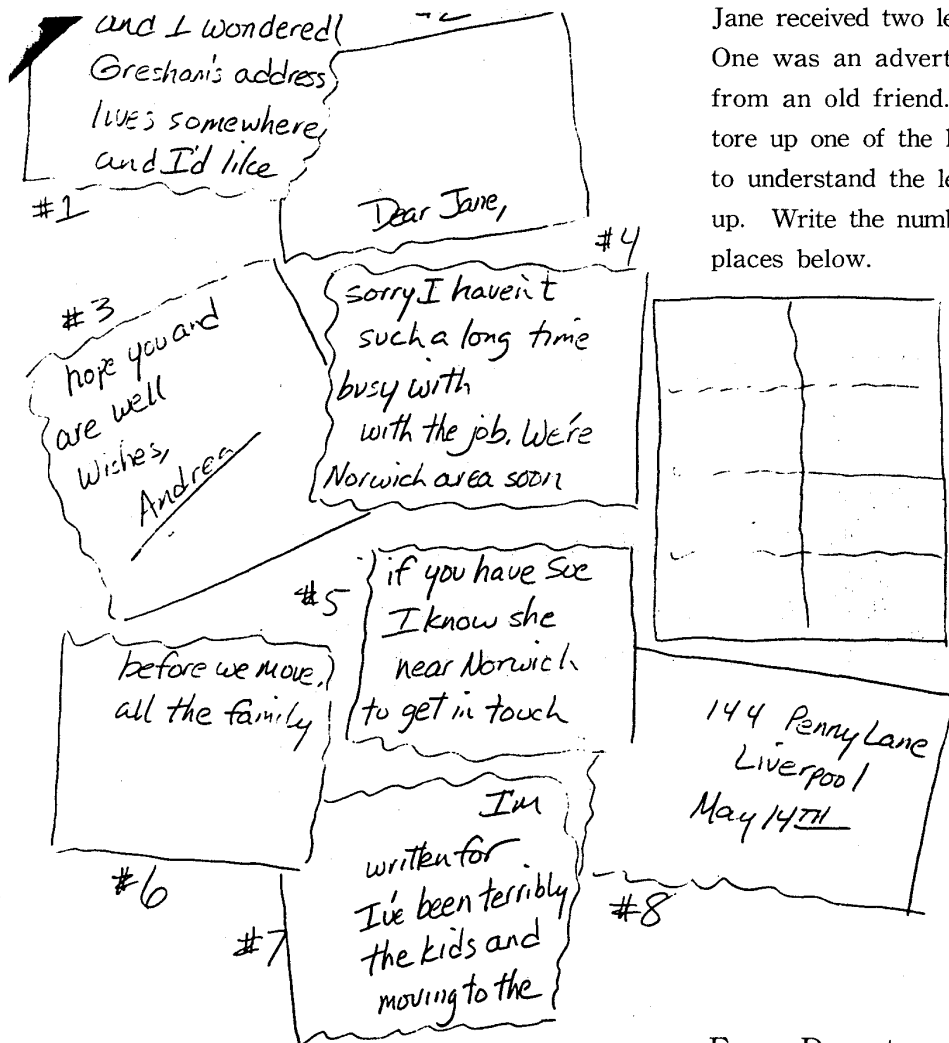 and I wondered
Gresham's address
lives somewhere
and I'd like
#1
Dear Jane,
#3
hope you and
are well
Wishes,
Andrea
#4
sorry I haven't
such a long time
busy with
with the job. We're
Norwich area soon
#5
if you have Sue
I know she
near Norwich
to get in touch
before we move.
all the family
#6
I'm
written for
I've been terribly
the kids and
moving to the
#7
144 Penny Lane
Liverpool
May 14TH
#8
Jane received two
One was an
from an old friend.
tore up one of the
to understand the
up. Write the
places below.